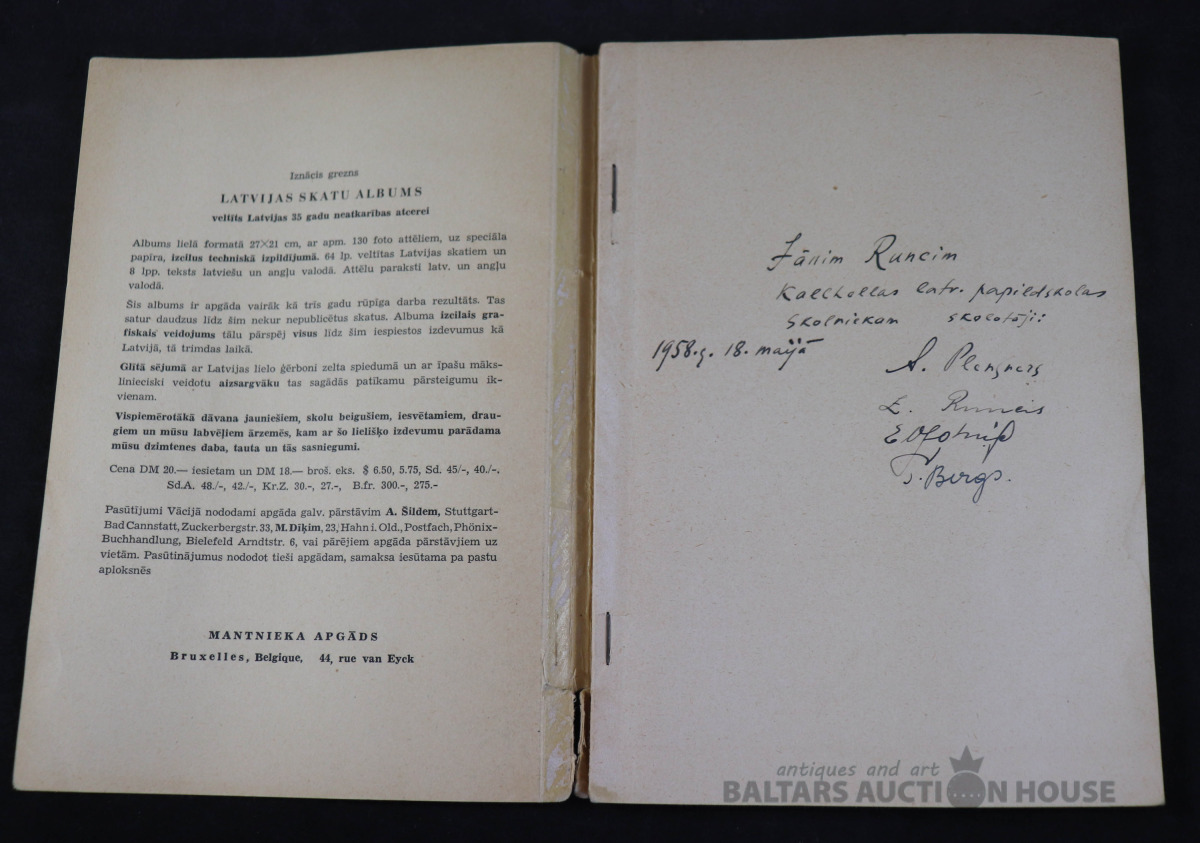 Iznācis grezns
LATVIJAS SKATU ALBUMS
veltīts Latvijas 35 gadu neatkarības atcerei
Albums lielā formatā 27×21 cm, ar apm. 130 foto attēliem, uz speciāla
papira, izcilus techniskā izpildījumā. 64 lp. veltītas Latvijas skatiem un
8 lpp. teksts latviešu un angļu valodā. Attēlu paraksti latv. un angļu
valodā.
Šis albums ir apgāda vairāk kā trīs gadu rūpīga darba rezultāts. Tas
satur daudzus līdz šim nekur nepublicētus skatus. Albuma izcilais gra-
fiskais veidojums tālu pārspēj visus līdz šim iespiestos izdevumus kā
Latvijā, tā trimdas laikā.
Glītā sējumā ar Latvijas lielo ģērboni zelta spiedumā un ar īpašu māks-
linieciski veidotu aizsargvāku tas sagādās patīkamu pārsteigumu ik-
vienam.
Vispiemērotākā dāvana jauniešiem, skolu beigušiem, iesvētamiem, drau-
giem un mūsu labvēļiem ārzemēs, kam ar šo lielišķo izdevumu parādama
mūsu dzimtenes daba, tauta un tās sasniegumi.
Cena DM 20.— iesietam un DM 18.— broš. eks. $ 6.50, 5.75, Sd. 45/-, 40./-,
Sd.A. 48./-, 42./-, Kr.Z. 30.-, 27.-, B.fr. 300.-, 275.-
Pasūtījumi Vācijā nododami apgāda galv. pārstāvim A. Šildem, Stuttgart-
Bad Cannstatt, Zuckerbergstr. 33, M. Dīķim, 23, Hahn i. Old., Postfach, Phönix-
Buchhandlung, Bielefeld Arndtstr. 6, vai pārējiem apgāda pārstāvjiem uz
vietām. Pasūtinājumus nododot tieši apgādam, samaksa iesūtama pa pastu
aploksnēs
MANTNIEKA APGĀDS
Bruxelles, Belgique, 44, rue van Eyck
Jānim Runcim
Kallhollas latv. papildskolas
skolniekam skolotāji:
1958.g. 18. maijā
A. Plensners
E. Runcis
T. Bergs.
antiques and art
BALTARS AUCTION HOUSE